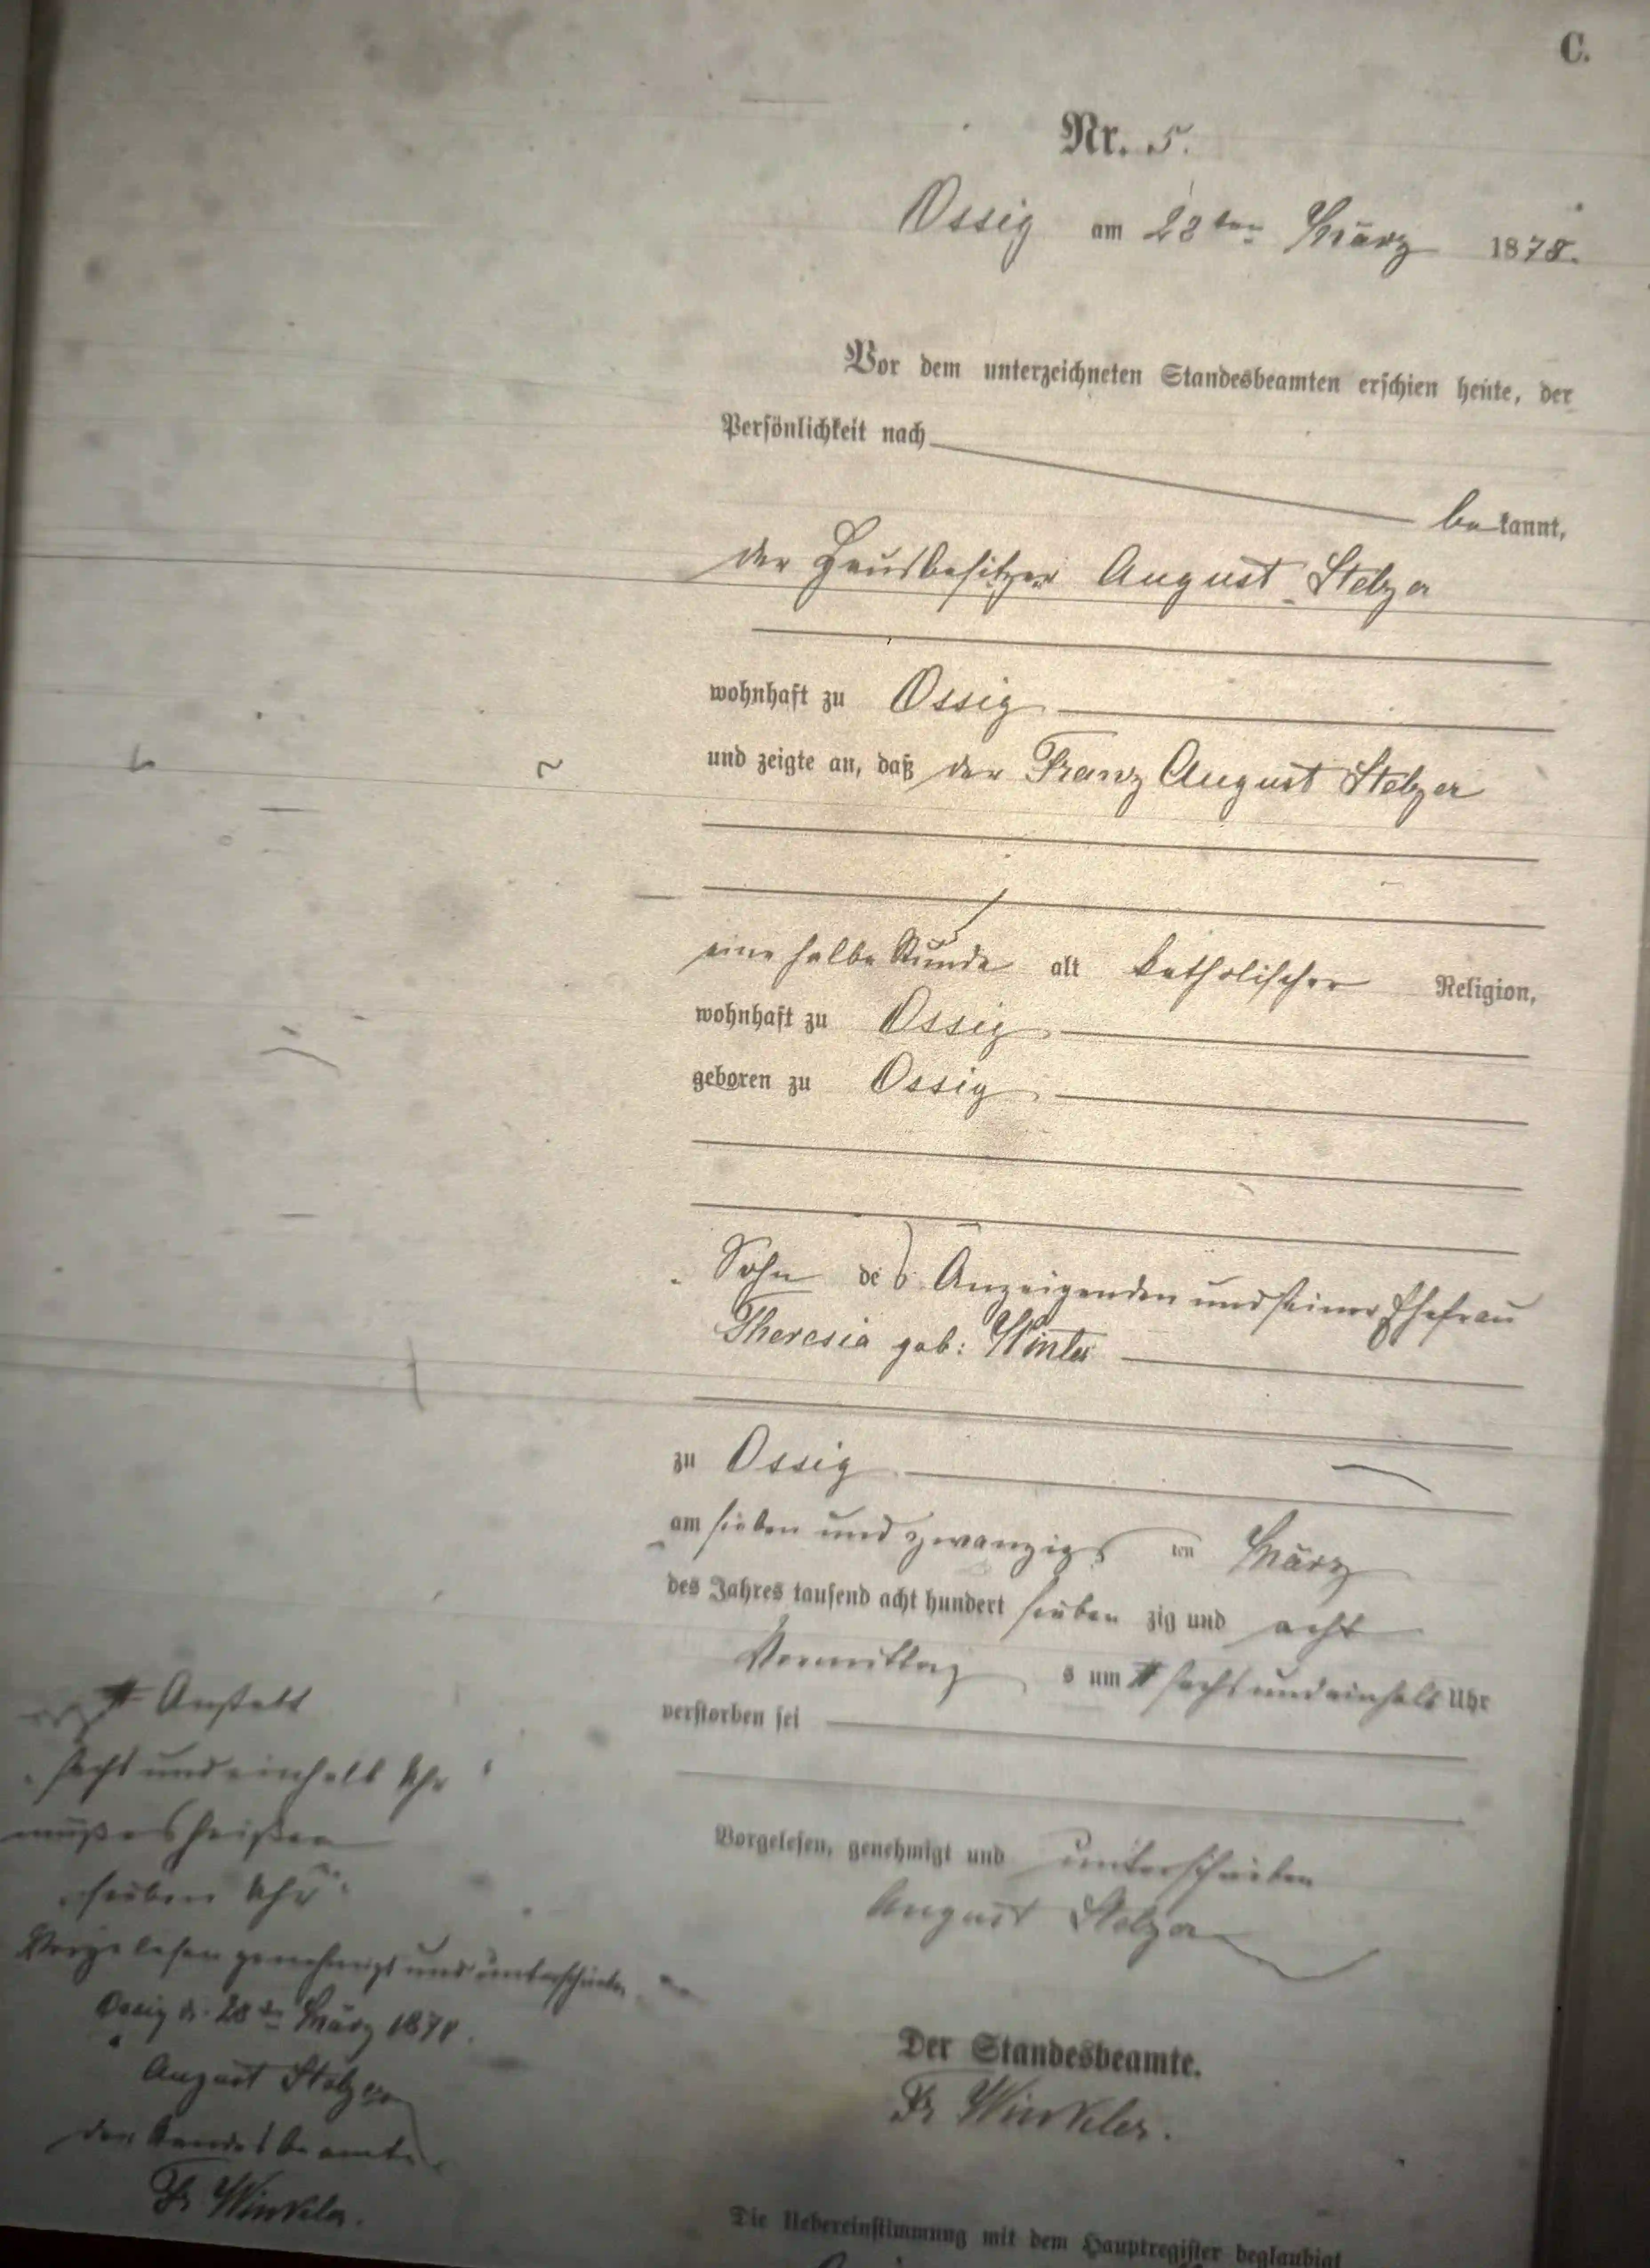 C.
Nr. 5.
Ossig am 28ten März 1878.
Vor dem unterzeichneten Standesbeamten erschien heute, der
Persönlichkeit nach
bekannt,
der Hausbesitzer August Stelzer
wohnhaft zu Ossig
und zeigte an, daß der Franz August Stelzer
eine halbe Stunde alt katholischer Religion,
wohnhaft zu Ossig
geboren zu Ossig
Sohn des Anzeigenden und seiner Ehefrau
Theresia geb: Winter
zu Ossig
am sieben und zwanzigsten März
des Jahres tausend acht hundert siebenzig und acht
Vormittags um # sechs und einhalb Uhr
verstorben sei
Vorgelesen, genehmigt und unterschrieben
August Stelzer
Der Standesbeamte.
Fr Winkler.
Die Uebereinstimmung mit dem Hauptregister beglaubigt
# Anstatt
"sechs und einhalb Uhr"
muß es heißen
"sieben Uhr"
Vorgelesen genehmigt und unterschrieben
Ossig d. 28ten März 1878.
August Stelzer
Der Standesbeamte
Fr Winkler.